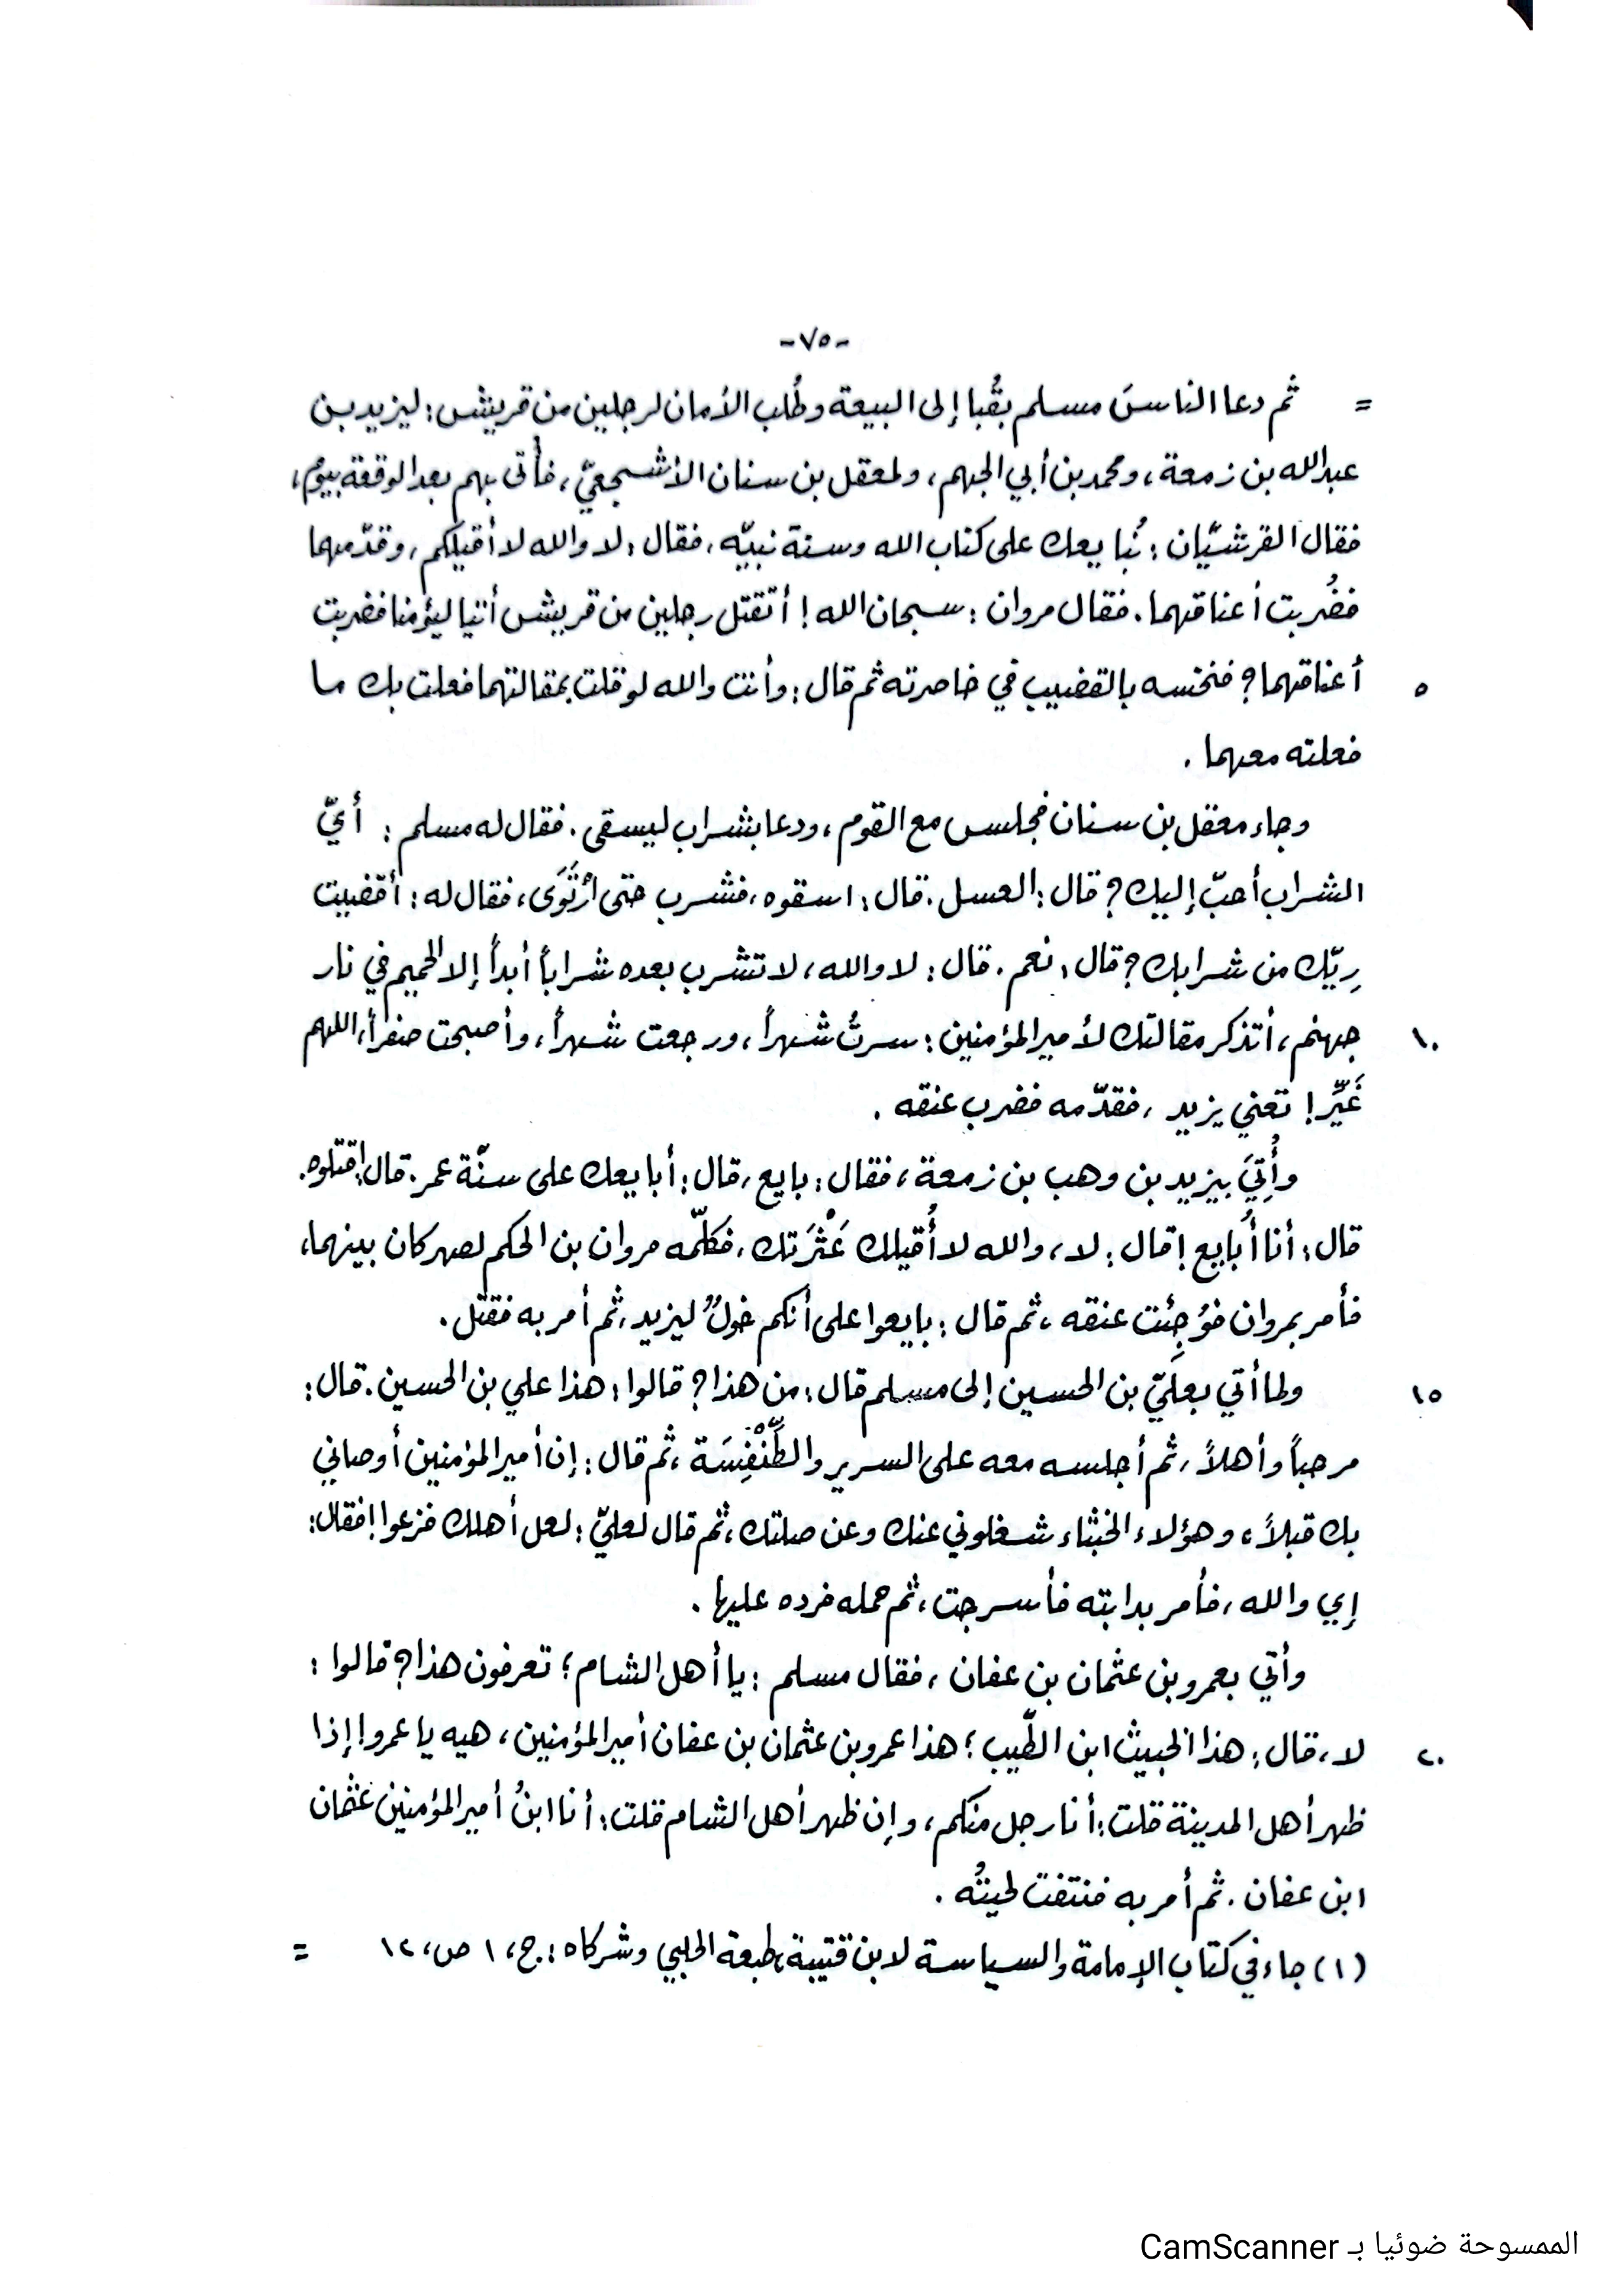 -٧٥-
= ثم دعا الناسَ مسلم بقُبا إلى البيعة وطُلب الأمان لرجلين من قريش: ليزيد بن
عبدالله بن زمعة، ومحمد بن أبي الجهم، ولمعقل بن سنان الأشجعيّ، فأُتى بهم بعد الوقعة بيوم،
فقال القرشيّان: نُبايعك على كتاب الله وسنة نبيّه، فقال: لا والله لا أقيلكم، وقدّمهما
فضُربت أعناقهما. فقال مروان: سبحان الله! أتقتل رجلين من قريش أتيا ليؤمنا فضربت
٥ أعناقهما؟ فنخسه بالقضيب في خاصرته ثم قال: وأنت والله لو قلت بمقالتهما فعلت بك ما
فعلته معهما.
وجاء معقل بن سنان فجلس مع القوم، ودعا بشراب ليسقى. فقال له مسلم: أيّ
الشراب أحبّ إليك؟ قال: العسل. قال: اسقوه، فشرب حتى ارْتَوَى، فقال له: أقضيت
رِيّك من شرابك؟ قال: نعم. قال: لا والله، لا تشرب بعده شراباً أبداً إلا الحميم في نار
١٠ جهنم، أتذكر مقالتك لأمير المؤمنين: سرتُ شهراً، ورجعت شهراً، وأصبحت صفراً، اللهم
غَيِّر! تعني يزيد، فقدّمه فضرب عنقه.
وأُتِيَ بيزيد بن وهب بن زمعة، فقال: بايع، قال: أبايعك على سنّة عمر. قال: اقتلوه.
قال: أنا أُبايع! قال: لا، والله لا أُقيلك عَثْرَتك، فكلّمه مروان بن الحكم لصهر كان بينهما،
فأمر بمروان فوُجِئت عنقه، ثم قال: بايعوا على أنكم خولٌ ليزيد، ثم أمر به فقتل.
١٥ ولما أتي بعليّ بن الحسين إلى مسلم قال: من هذا؟ قالوا: هذا علي بن الحسين. قال:
مرحباً وأهلاً، ثم أجلسه معه على السرير والطِّنْفِسَة، ثم قال: إن أمير المؤمنين أوصاني
بك قبلاً، وهؤلاء الخبثاء شغلوني عنك وعن صلتك، ثم قال لعليّ: لعل أهلك فزعوا! فقال:
إي والله، فأمر بدابته فأسرجت، ثم حمله فرده عليها.
وأتي بعمرو بن عثمان بن عفان، فقال مسلم: يا أهل الشام؛ تعرفون هذا؟ قالوا:
٢٠ لا، قال: هذا الخبيث ابن الطّيب؛ هذا عمرو بن عثمان بن عفان أمير المؤمنين، هيه يا عمرو! إذا
ظهر أهل المدينة قلت: أنا رجل منكم، وإن ظهر أهل الشام قلت: أنا ابنُ أمير المؤمنين عثمان
ابن عفان. ثم أمر به فنتفت لحيتُه.
(١) جاء في كتاب الإمامة والسياسة لابن قتيبة، طبعة الحلبي وشركاه: ج، ١ ص، ١٢ =
الممسوحة ضوئيا بـ CamScanner